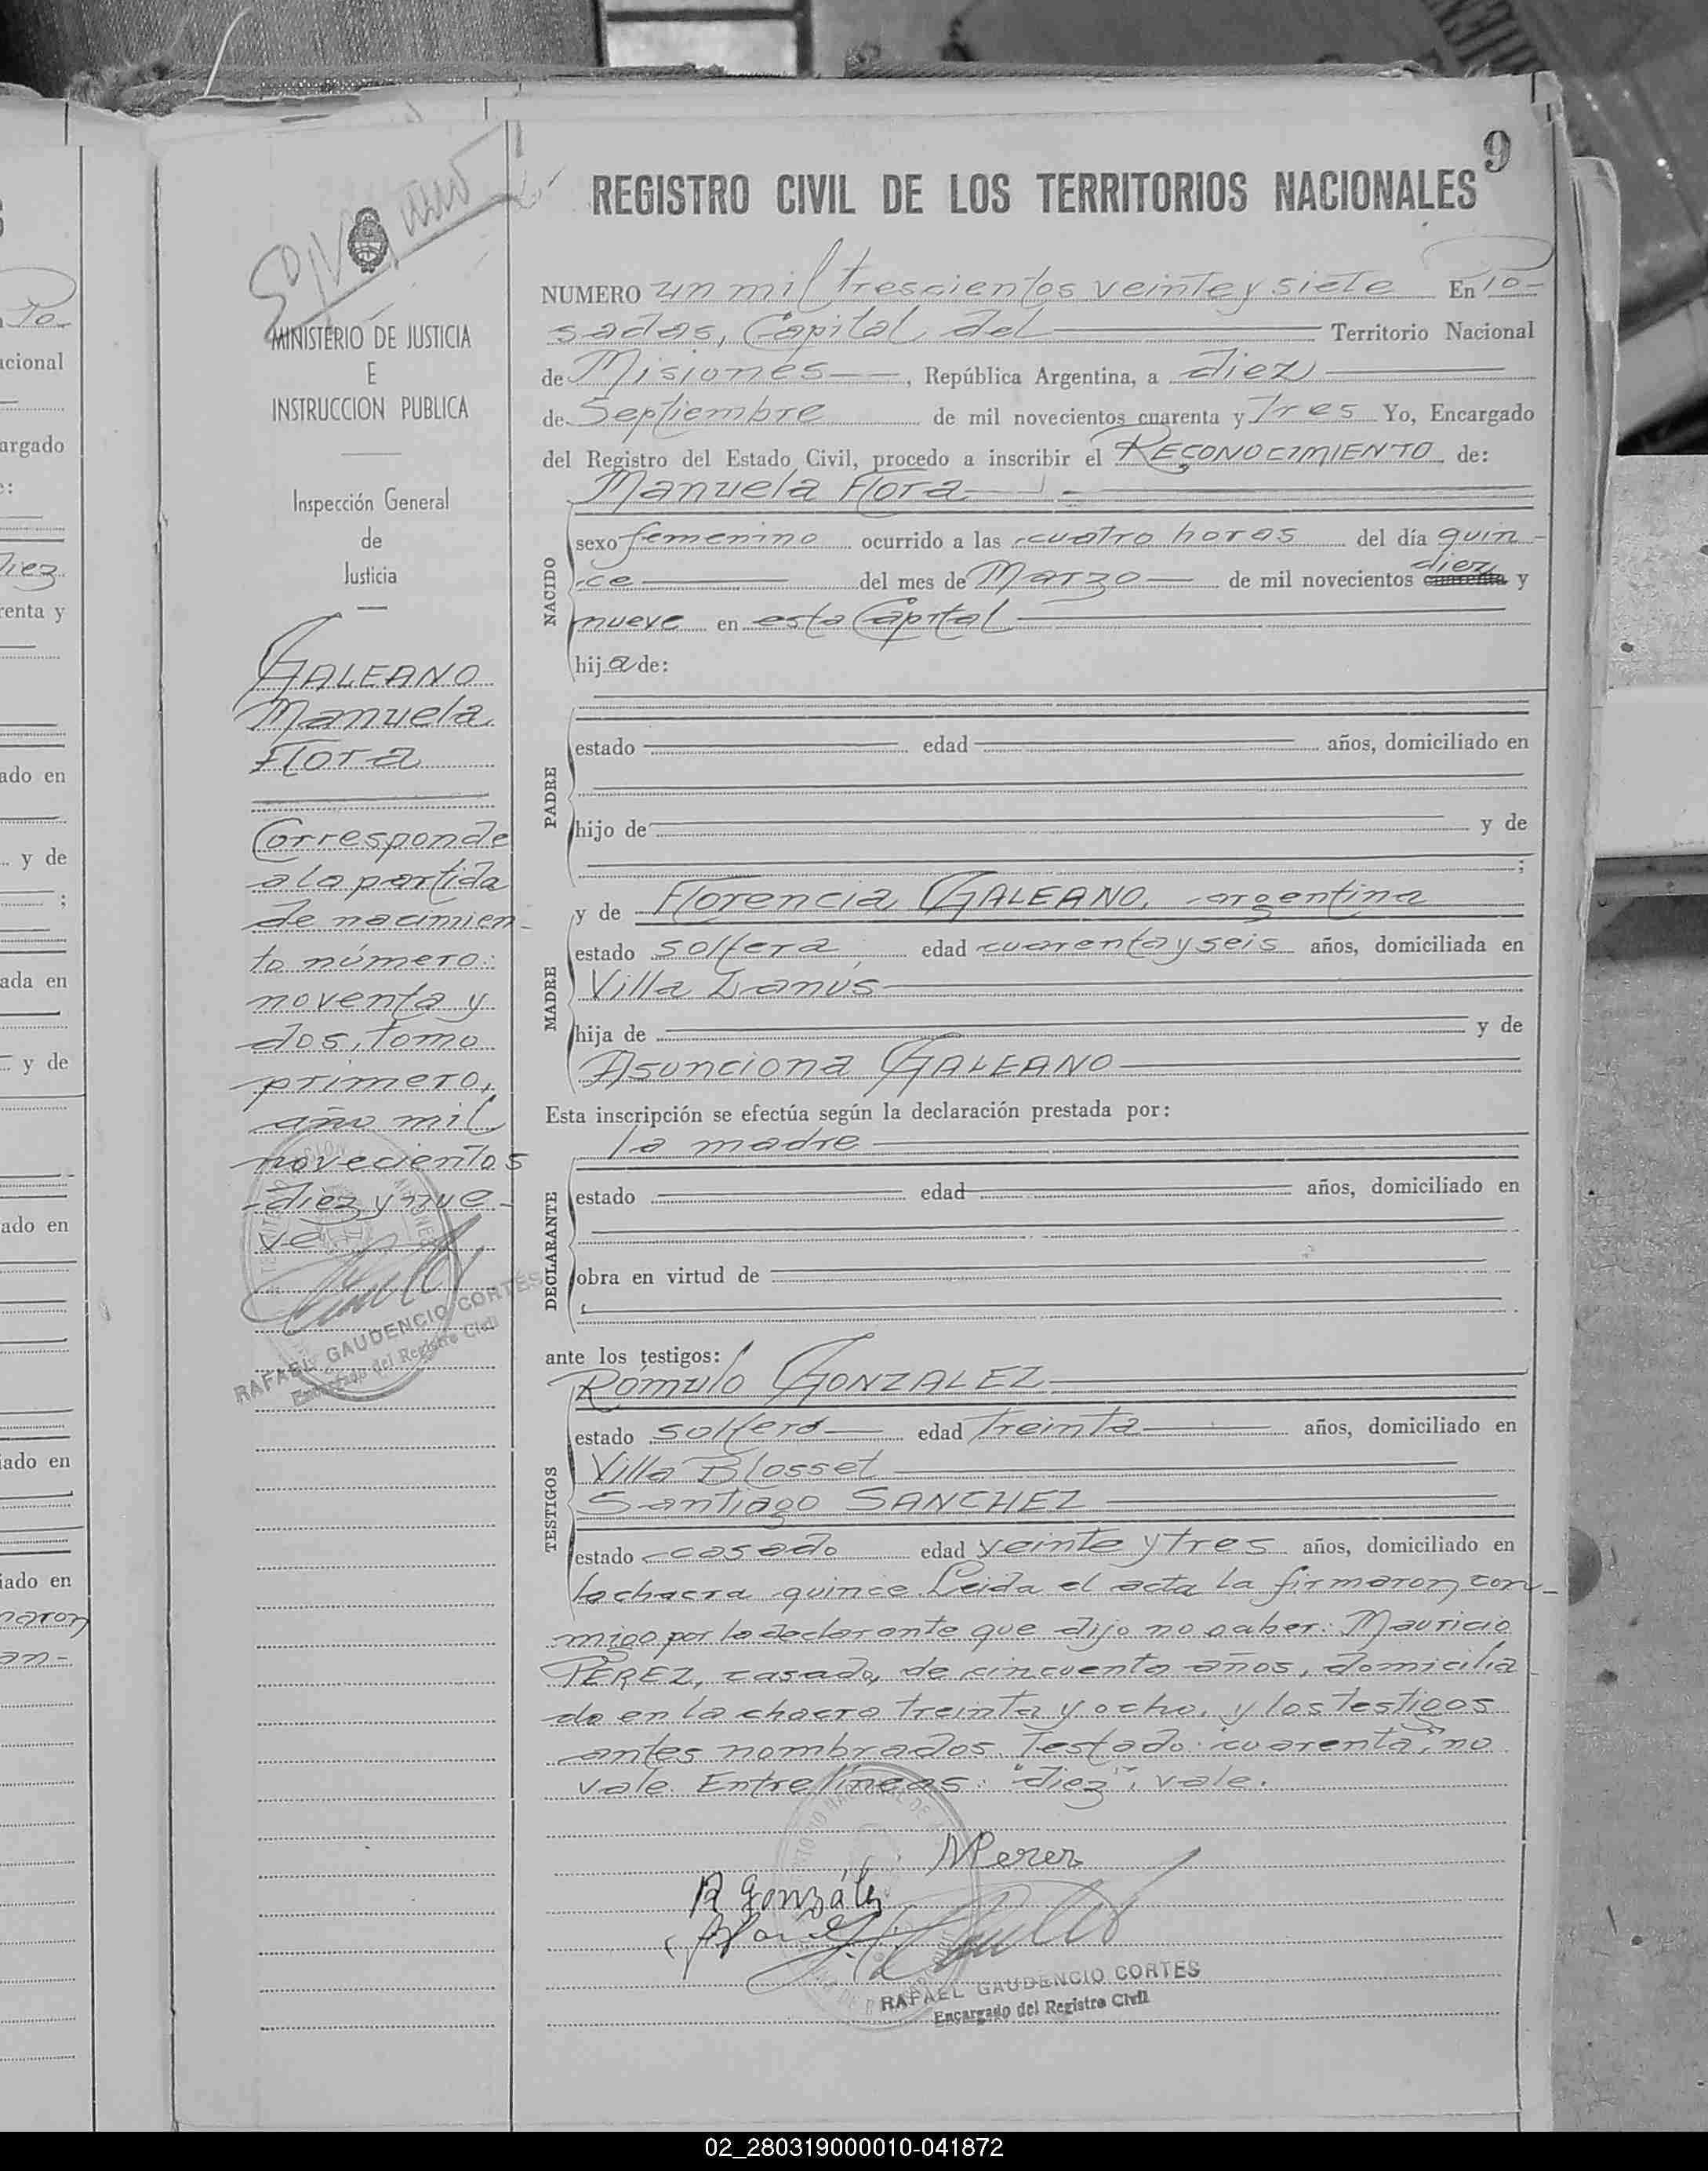 9
REGISTRO CIVIL DE LOS TERRITORIOS NACIONALES
NUMERO un mil trescientos veinte y siete En Po-
sadas, Capital del Territorio Nacional
de Misiones, República Argentina, a diez
de Septiembre de mil novecientos cuarenta y Tres Yo, Encargado
del Registro del Estado Civil, procedo a inscribir el RECONOCIMIENTO de:
Manuela Flora
NACIDO
sexo femenino ocurrido a las cuatro horas del día quin-
ce del mes de Marzo de mil novecientos cuarenta diez y
nueve en esta Capital
hija de:
PADRE
estado edad años, domiciliado en
hijo de y de
;
MADRE
y de Florencia GALEANO, argentina
estado soltera, edad cuarenta y seis años, domiciliada en
Villa Lanús
hija de y de
Asunciona GALEANO
Esta inscripción se efectúa según la declaración prestada por:
la madre
DECLARANTE
estado edad años, domiciliado en
obra en virtud de
ante los testigos:
TESTIGOS
Rómulo GONZALEZ
estado soltero edad Treinta años, domiciliado en
Villa Blosset
Santiago SANCHEZ
estado casado edad veinte y tres años, domiciliado en
la chacra quince. Leida el acta la firmaron con-
migo por la declarante que dijo no saber: Mauricio
PEREZ, casado, de cincuenta años, domicilia-
do en la chacra treinta y ocho, y los testigos
antes nombrados. Testado: "cuarenta", no
vale. Entre líneas: "diez", vale.
MPerez
R González
RAFAEL GAUDENCIO CORTES
Encargado del Registro Civil
MINISTERIO DE JUSTICIA
E
INSTRUCCION PUBLICA
Inspección General
de
Justicia
GALEANO
Manuela
Flora
Corresponde
a la partida
de nacimien-
to número:
noventa y
dos, tomo
primero,
año mil
novecientos
diez y nue-
ve
RAFAEL GAUDENCIO CORTES
Encargado del Registro Civil
02_280319000010-041872